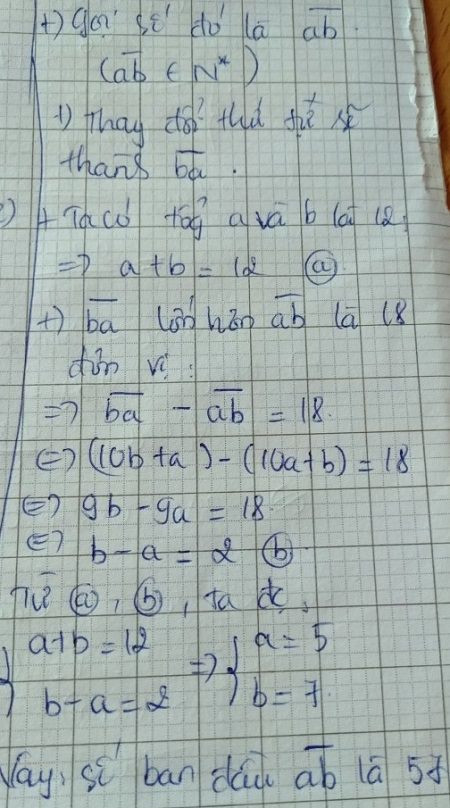 +) Gọi số đó là ab̅.
(ab̅ ∈ N*)
+) Thay đổi thứ tự sẽ
thành b̅a̅.
+ Ta có tổng a và b là 12.
=> a+b = 12 ⓐ
+) b̅a̅ lớn hơn a̅b̅ là 18
đơn vị:
=> b̅a̅ - a̅b̅ = 18.
<=> (10b+a) - (10a+b) = 18
<=> 9b - 9a = 18
<=> b - a = 2 ⓑ
Từ ⓐ, ⓑ, ta đc,
{ a+b = 12 => { a = 5
b - a = 2 b = 7.
Vậy, số ban đầu a̅b̅ là 57